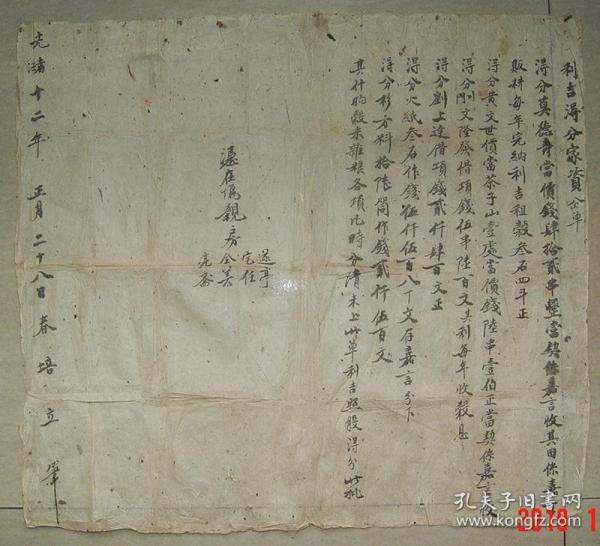 利吉得分家資仝單
得分莫德壽當價錢肆拾貳串整當契係嘉言收其田係壽
耕每年完納利吉租穀叁石四斗正
得分黃文世價當茶子山壹處當價錢陸串壹伯正當契係嘉言收
得分文陞發借項錢伍串陸百文其利每年收穀息
得分劉上達借項錢貳仟肆百文正
得分火紙叁石作錢伍仟伍百八十文存嘉言分下
得分杉方料拾陸筒作錢貳仟伍百文
其什物穀米雜粮各項比時分清未上此單利吉照股得分此批
憑在傷親房
定任
全美
光緒十二年 正月二十八日春培立筆
孔夫子旧書网
www.kongfz.com